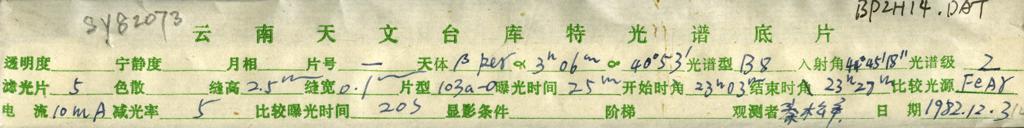 SY82073 BP2H14.DAT
云南天文台库特光谱底片
透明度 宁静度 月相 片号 一 天体 β per α 3ʰ06ᵐ α 40°53′ 光谱型 B8 入射角 44°45′18″ 光谱级 2
滤光片 5 色散 缝高 2.5ᵐ 缝宽 0.1ᵐᵐ 片型 103a-O 曝光时间 25ᵐ 开始时角 23ʰ03ᵐ 结束时角 23ʰ27ᵐ 比较光源 FeAr
电流 10mA 减光率 5 比较曝光时间 20S 显影条件 阶梯 观测者 日期 1982.12.3